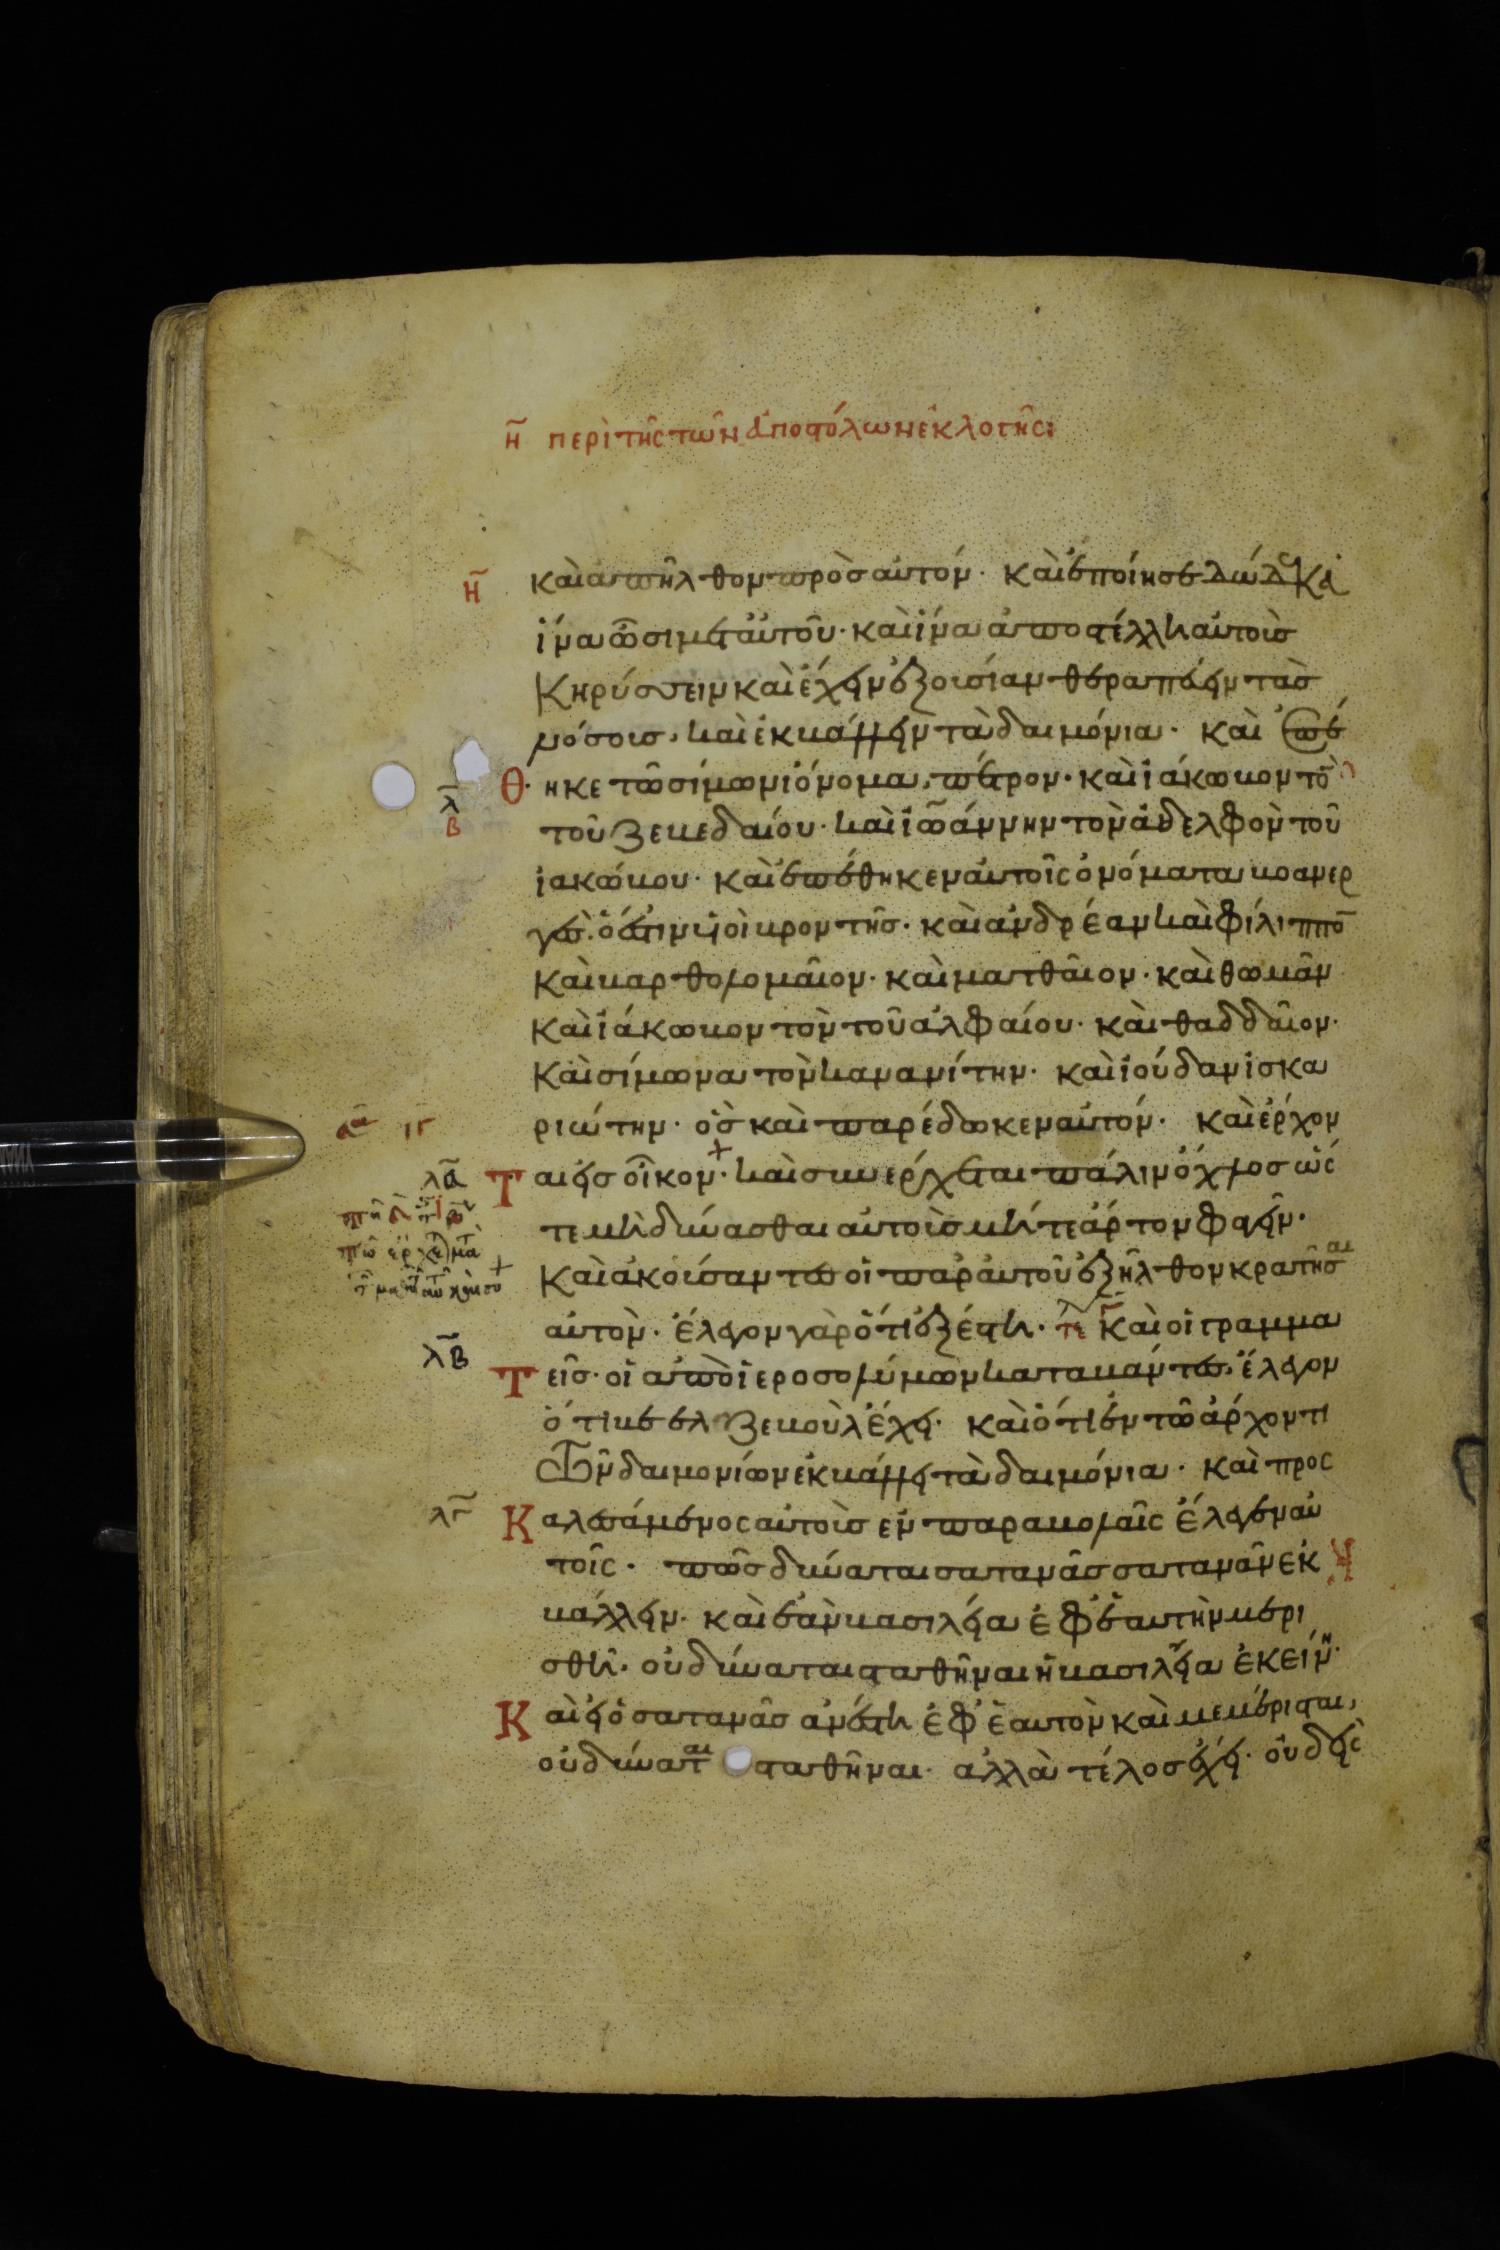 η̃ περὶ τῆς τῶν ἀποστόλων ἐκλογῆς:
η̃ καὶ ἀπῆλθον πρὸς αὐτόν. καὶ ἐποίησε δώδεκα
ἵνα ὦσι μετ αὐτοῦ. καὶ ἵνα ἀποστέλλῃ αὐτοὺς
κηρύσσειν καὶ ἔχειν ἐξουσίαν θεραπεύειν τὰς
νόσους, καὶ ἐκβάλλειν τὰ δαιμόνια. καὶ ἐπέ
λ̃ β θηκε τῶ σίμωνι ὄνομα, πέτρον. καὶ ἰάκωβον τὸ̄
τοῦ ζεβεδαίου. καὶ ἰωάννην τὸν ἀδελφὸν τοῦ
ἰακώβου. καὶ ἐπέθηκεν αὐτοῖς ὀνόματα βοανερ
γὲς. ὅ ἐστιν υἱοὶ βροντῆς. καὶ ἀνδρέαν καὶ φίλιππο̄
καὶ βαρθολομαῖον. καὶ ματθαῖον. καὶ θωμᾶν
καὶ ἰάκωβον τὸν τοῦ ἀλφαίου. καὶ θαδδαῖον.
καὶ σίμωνα τὸν κανανίτην. καὶ ἰούδαν ἰσκα
ριώτην. ὃς καὶ παρέδωκεν αὐτόν. καὶ ἔρχον
λ̃α ται εἰς οἶκον. καὶ συνέρχεται πάλιν ὄχλος ὥς
τε μὴ δύνασθαι αὐτοὺς μήτε ἄρτον φαγεῖν.
καὶ ἀκούσαντες οἱ παρ αὐτοῦ ἐξῆλθον κρατῆσαι
αὐτὸν. ἔλεγον γὰρ ὅτι ἐξέστη. καὶ οἱ γραμμα
λ̃β τεῖς. οἱ ἀπὸ ἱεροσολύμων καταβάντες, ἔλεγον
ὅτι βεελζεβοὺλ ἔχει. καὶ ὅτι ἐν τῶ ἄρχοντι
τῶν δαιμονίων ἐκβάλλει τὰ δαιμόνια. καὶ προς
λ̃γ καλεσάμενος αὐτοὺς ἐν παραβολαῖς ἔλεγεν αὐ
τοῖς. πῶς δύναται σατανᾶς σατανᾶν ἐκ
βάλλειν. καὶ ἐὰν βασιλεία ἐφ ἑαυτὴν μερι
σθῆ. οὐ δύναται σταθῆναι ἡ βασιλεία ἐκείνη.
καὶ εἰ ὁ σατανᾶς ἀνέστη ἐφ ἑαυτὸν καὶ μεμέρισται,
οὐ δύναται σταθῆναι. ἀλλὰ τέλος ἔχει. οὐδεὶς